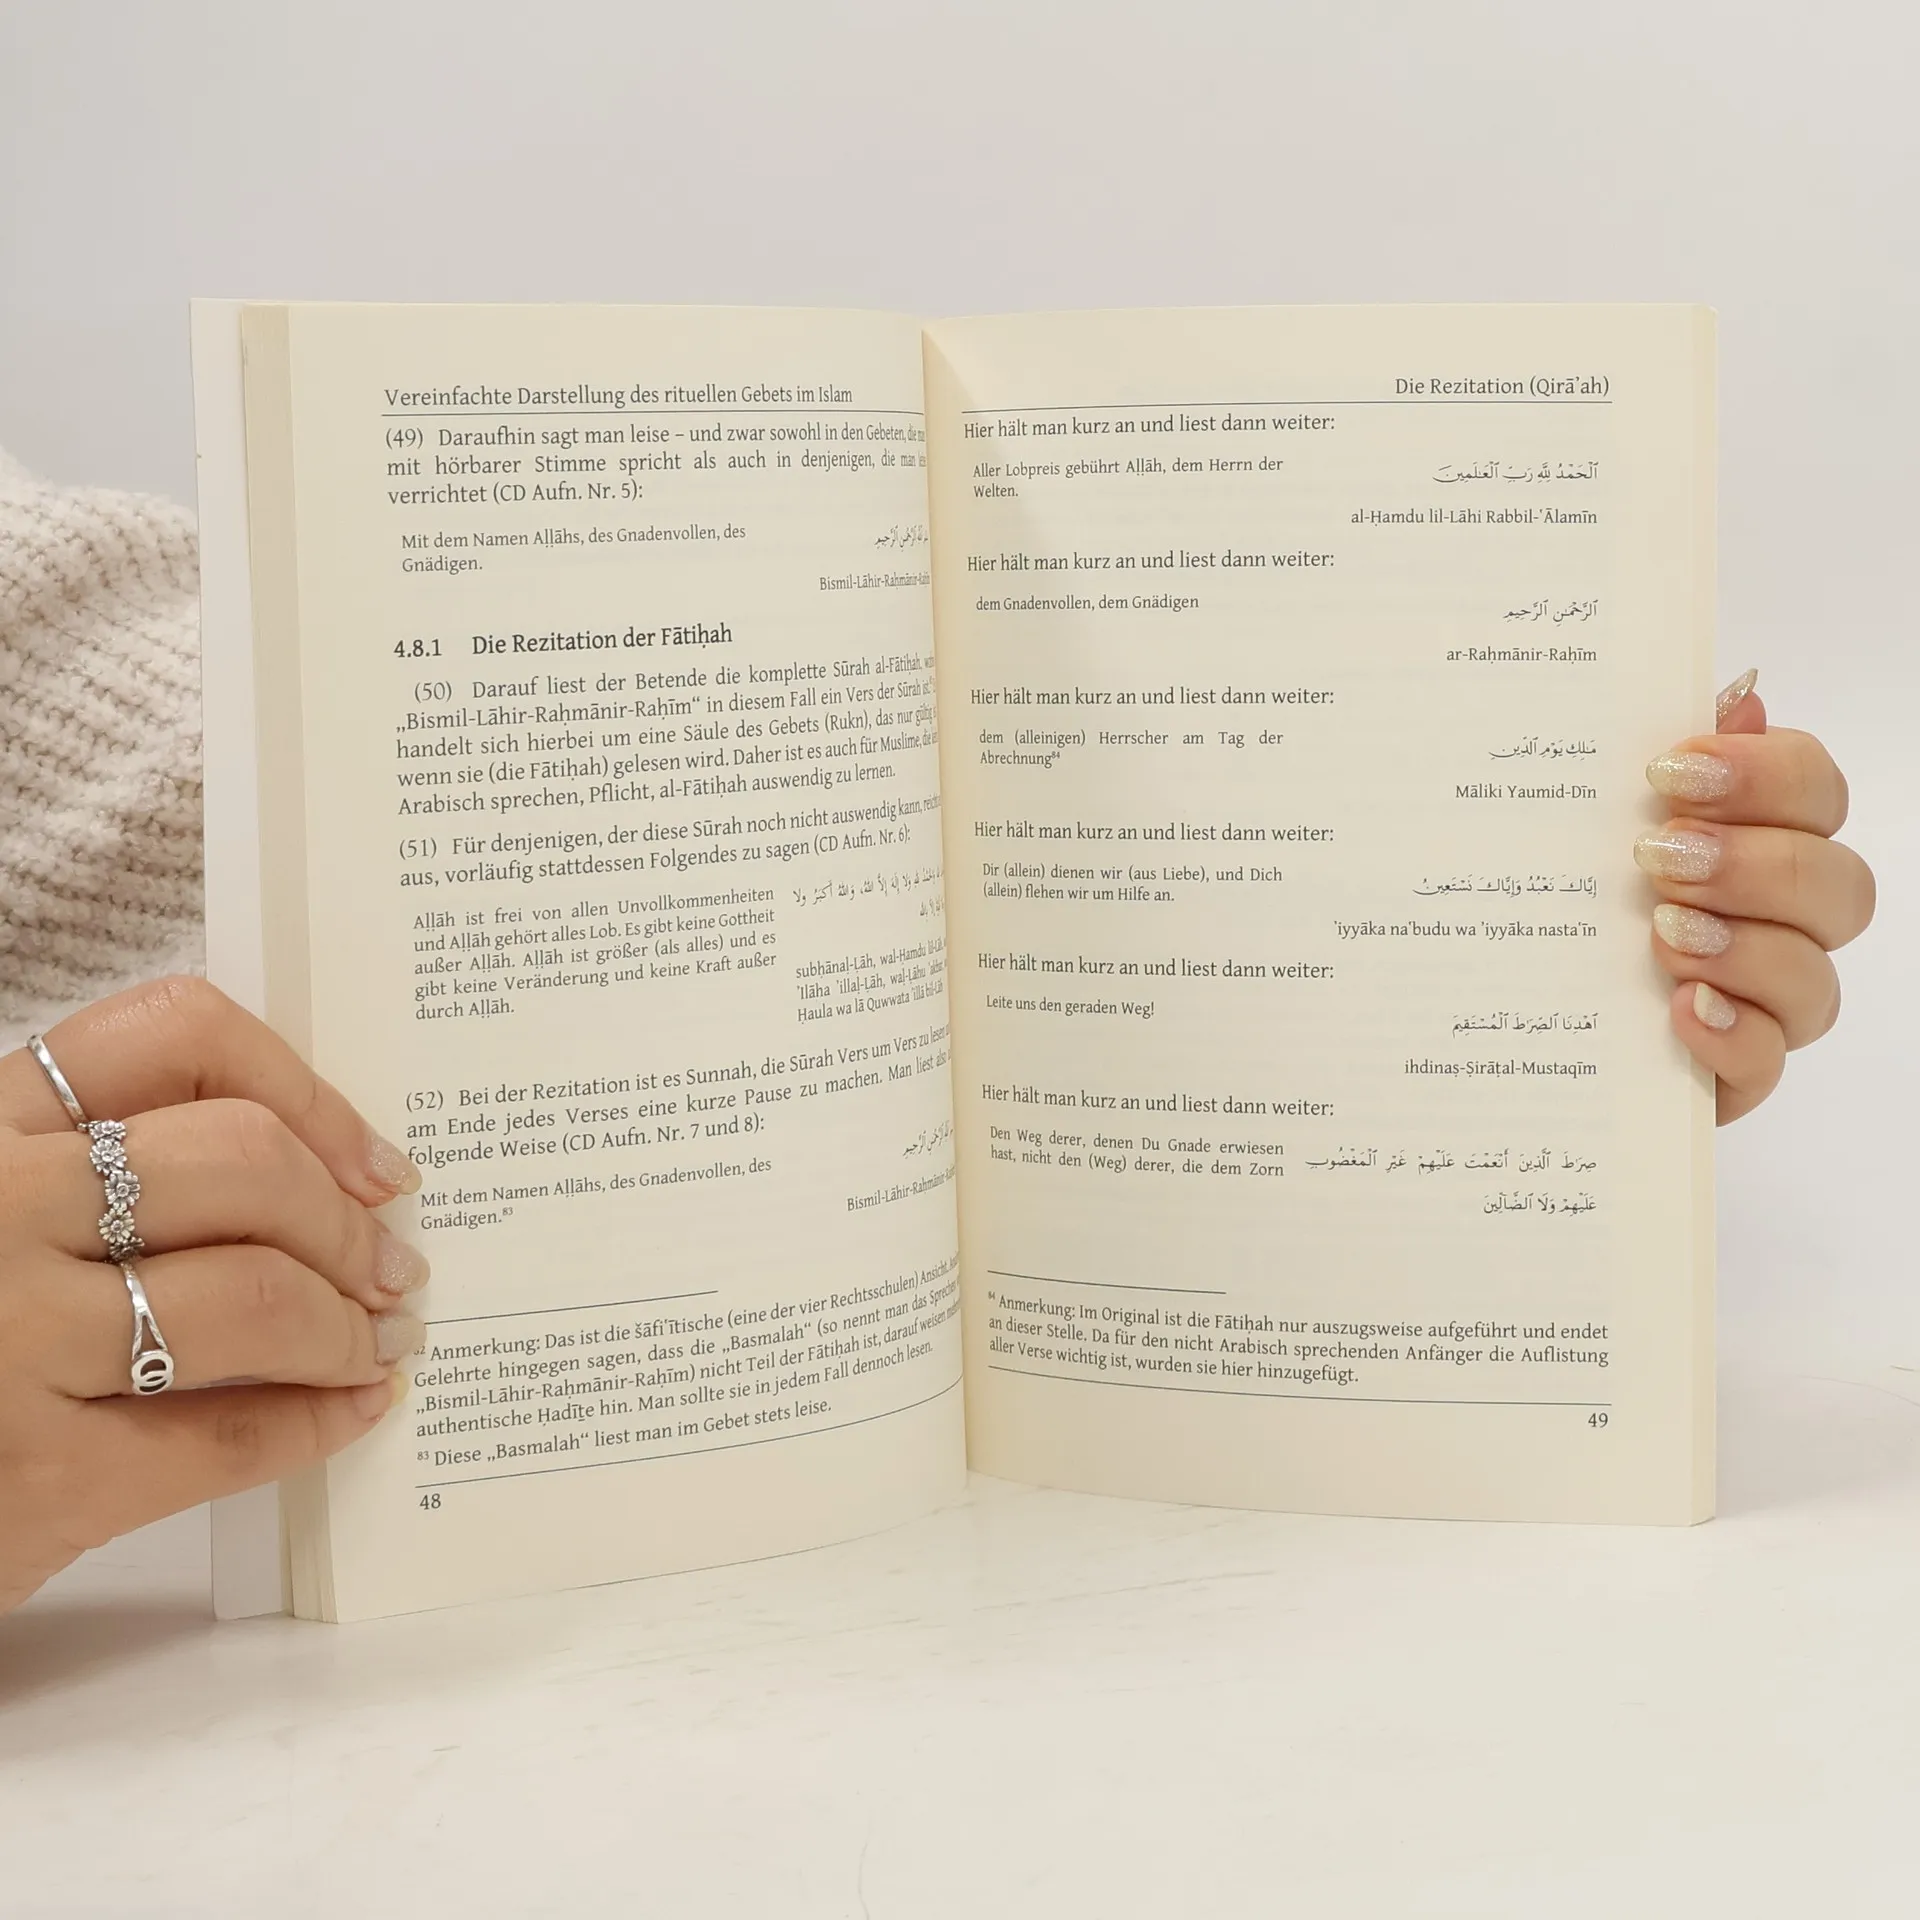 Vereinfachte Darstellung des rituellen Gebets im Islam
(49) Daraufhin sagt man leise – und zwar sowohl in den Gebeten, die
mit hörbarer Stimme spricht als auch in denjenigen, die man
verrichtet (CD Aufn. Nr. 5):
Mit dem Namen Aḷḷāhs, des Gnadenvollen, des
Gnädigen.
Bismil-Lāhir-Raḥmānir-
4.8.1 Die Rezitation der Fātiḥah
(50) Darauf liest der Betende die komplette Sūrah al-Fātiḥah,
„Bismil-Lāhir-Raḥmānir-Raḥīm“ in diesem Fall ein Vers der Sūrah ist.
handelt sich hierbei um eine Säule des Gebets (Rukn), das nur gültig
wenn sie (die Fātiḥah) gelesen wird. Daher ist es auch für Muslime, die
Arabisch sprechen, Pflicht, al-Fātiḥah auswendig zu lernen.
(51) Für denjenigen, der diese Sūrah noch nicht auswendig kann, reicht
aus, vorläufig stattdessen Folgendes zu sagen (CD Aufn. Nr. 6):
Aḷḷāh ist frei von allen Unvollkommenheiten
und Aḷḷāh gehört alles Lob. Es gibt keine Gottheit
außer Aḷḷāh. Aḷḷāh ist größer (als alles) und es
gibt keine Veränderung und keine Kraft außer
durch Aḷḷāh.
وَلَا إِلَهَ إِلَّا اللهُ، وَ اللهُ أَكْبَرُ وَلَا
subḥānaḷ-Ḷāh, wal-Ḥamdu lil-Lāh,
'Ilāha 'illaḷ-Ḷāh, waḷ-Ḷāhu 'akbar
Ḥaula wa lā Quwwata 'illā bil-Lāh
(52) Bei der Rezitation ist es Sunnah, die Sūrah Vers um Vers zu lesen
am Ende jedes Verses eine kurze Pause zu machen. Man liest also
folgende Weise (CD Aufn. Nr. 7 und 8):
Mit dem Namen Aḷḷāhs, des Gnadenvollen, des
Gnädigen.⁸³
Bismil-Lāhir-Raḥmānir-
⁸² Anmerkung: Das ist die šāfi'ītische (eine der vier Rechtsschulen) Ansicht.
Gelehrte hingegen sagen, dass die „Basmalah“ (so nennt man das Sprechen
„Bismil-Lāhir-Raḥmānir-Raḥīm) nicht Teil der Fātiḥah ist, darauf weisen
authentische Ḥadīṯe hin. Man sollte sie in jedem Fall dennoch lesen.
⁸³ Diese „Basmalah“ liest man im Gebet stets leise.
48
Die Rezitation (Qirā'ah)
Hier hält man kurz an und liest dann weiter:
Aller Lobpreis gebührt Aḷḷāh, dem Herrn der
Welten.
ٱلْحَمْدُ لِلَّهِ رَبِّ ٱلْعَٰلَمِينَ
al-Ḥamdu lil-Lāhi Rabbil-'Ālamīn
Hier hält man kurz an und liest dann weiter:
dem Gnadenvollen, dem Gnädigen
ٱلرَّحْمَٰنِ ٱلرَّحِيمِ
ar-Raḥmānir-Raḥīm
Hier hält man kurz an und liest dann weiter:
dem (alleinigen) Herrscher am Tag der
Abrechnung⁸⁴
مَٰلِكِ يَوْمِ ٱلدِّينِ
Māliki Yaumid-Dīn
Hier hält man kurz an und liest dann weiter:
Dir (allein) dienen wir (aus Liebe), und Dich
(allein) flehen wir um Hilfe an.
إِيَّاكَ نَعْبُدُ وَإِيَّاكَ نَسْتَعِينُ
'iyyāka na'budu wa 'iyyāka nasta'īn
Hier hält man kurz an und liest dann weiter:
Leite uns den geraden Weg!
ٱهْدِنَا ٱلصِّرَٰطَ ٱلْمُسْتَقِيمَ
ihdinaṣ-Ṣirāṭal-Mustaqīm
Hier hält man kurz an und liest dann weiter:
Den Weg derer, denen Du Gnade erwiesen
hast, nicht den (Weg) derer, die dem Zorn
صِرَٰطَ ٱلَّذِينَ أَنْعَمْتَ عَلَيْهِمْ غَيْرِ ٱلْمَغْضُوبِ
عَلَيْهِمْ وَلَا ٱلضَّآلِّينَ
⁸⁴ Anmerkung: Im Original ist die Fātiḥah nur auszugsweise aufgeführt und endet
an dieser Stelle. Da für den nicht Arabisch sprechenden Anfänger die Auflistung
aller Verse wichtig ist, wurden sie hier hinzugefügt.
49